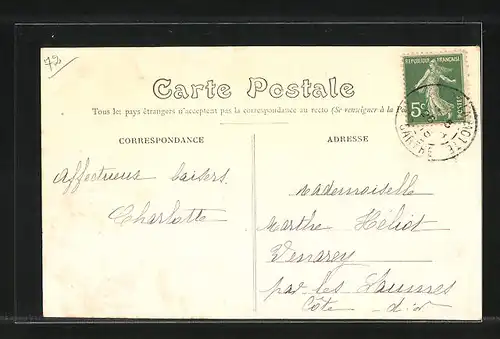 72
Carte Postale
Tous les pays étrangers n'acceptent pas la correspondance au recto (Se renseigner à la
CORRESPONDANCE
ADRESSE
REPUBLIQUE FRANÇAISE
5c
POSTES
SARTHE
Affectueux baisers
Charlotte
Mademoiselle
Marthe Héliot
Venarey
par les Laumes
Côte - d'or